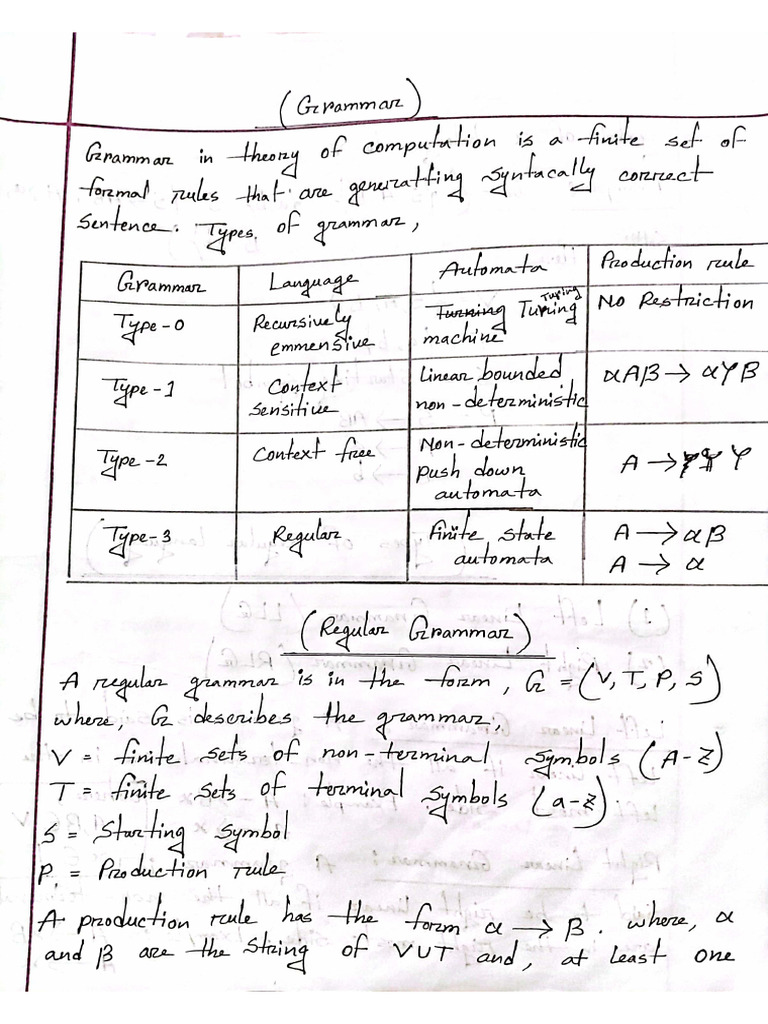 (Grammar)
Grammar in theory of computation is a finite set of
formal rules that are generatting syntacally correct
sentence. Types of grammar,
Grammar Language Automata Production rule
Type-0 Recursively emmensive Turning Turing Turing machine No Restriction
Type-1 Context sensitive Linear bounded non-deterministic αAβ → αγβ
Type-2 Context free Non-deterministic push down automata A → γ
Type-3 Regular finite state automata A → αβ A → α
(Regular Grammar)
A regular grammar is in the form, G = (V, T, P, S)
where, G describes the grammar,
V = finite sets of non-terminal symbols (A-Z)
T = finite sets of terminal symbols (a-z)
S = Starting symbol
P = Production rule
A production rule has the form α → β. where, α
and β are the string of VUT and, at least one